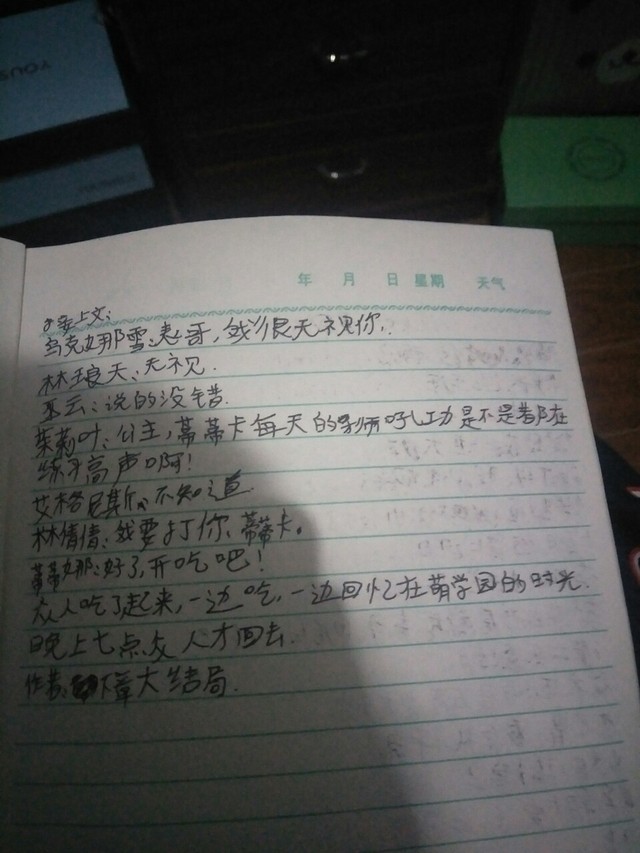 YOUS
年 月 日 星期 天气
接上文:
乌克娜雪:老哥,我很无视你.
林琅天:无视.
墨云:说的没错.
茱莉叶:公主,蒂蒂卡每天的狮吼功是不是都在
练习高声啊!
艾格尼斯:不知道.
林倩倩:我要打你、蒂蒂卡。
蒂蒂娜:好了,开吃吧!
众人吃了起来,一边吃,一边回忆在萌学园的时光.
晚上七点众人才回去.
作者:下章大结局.